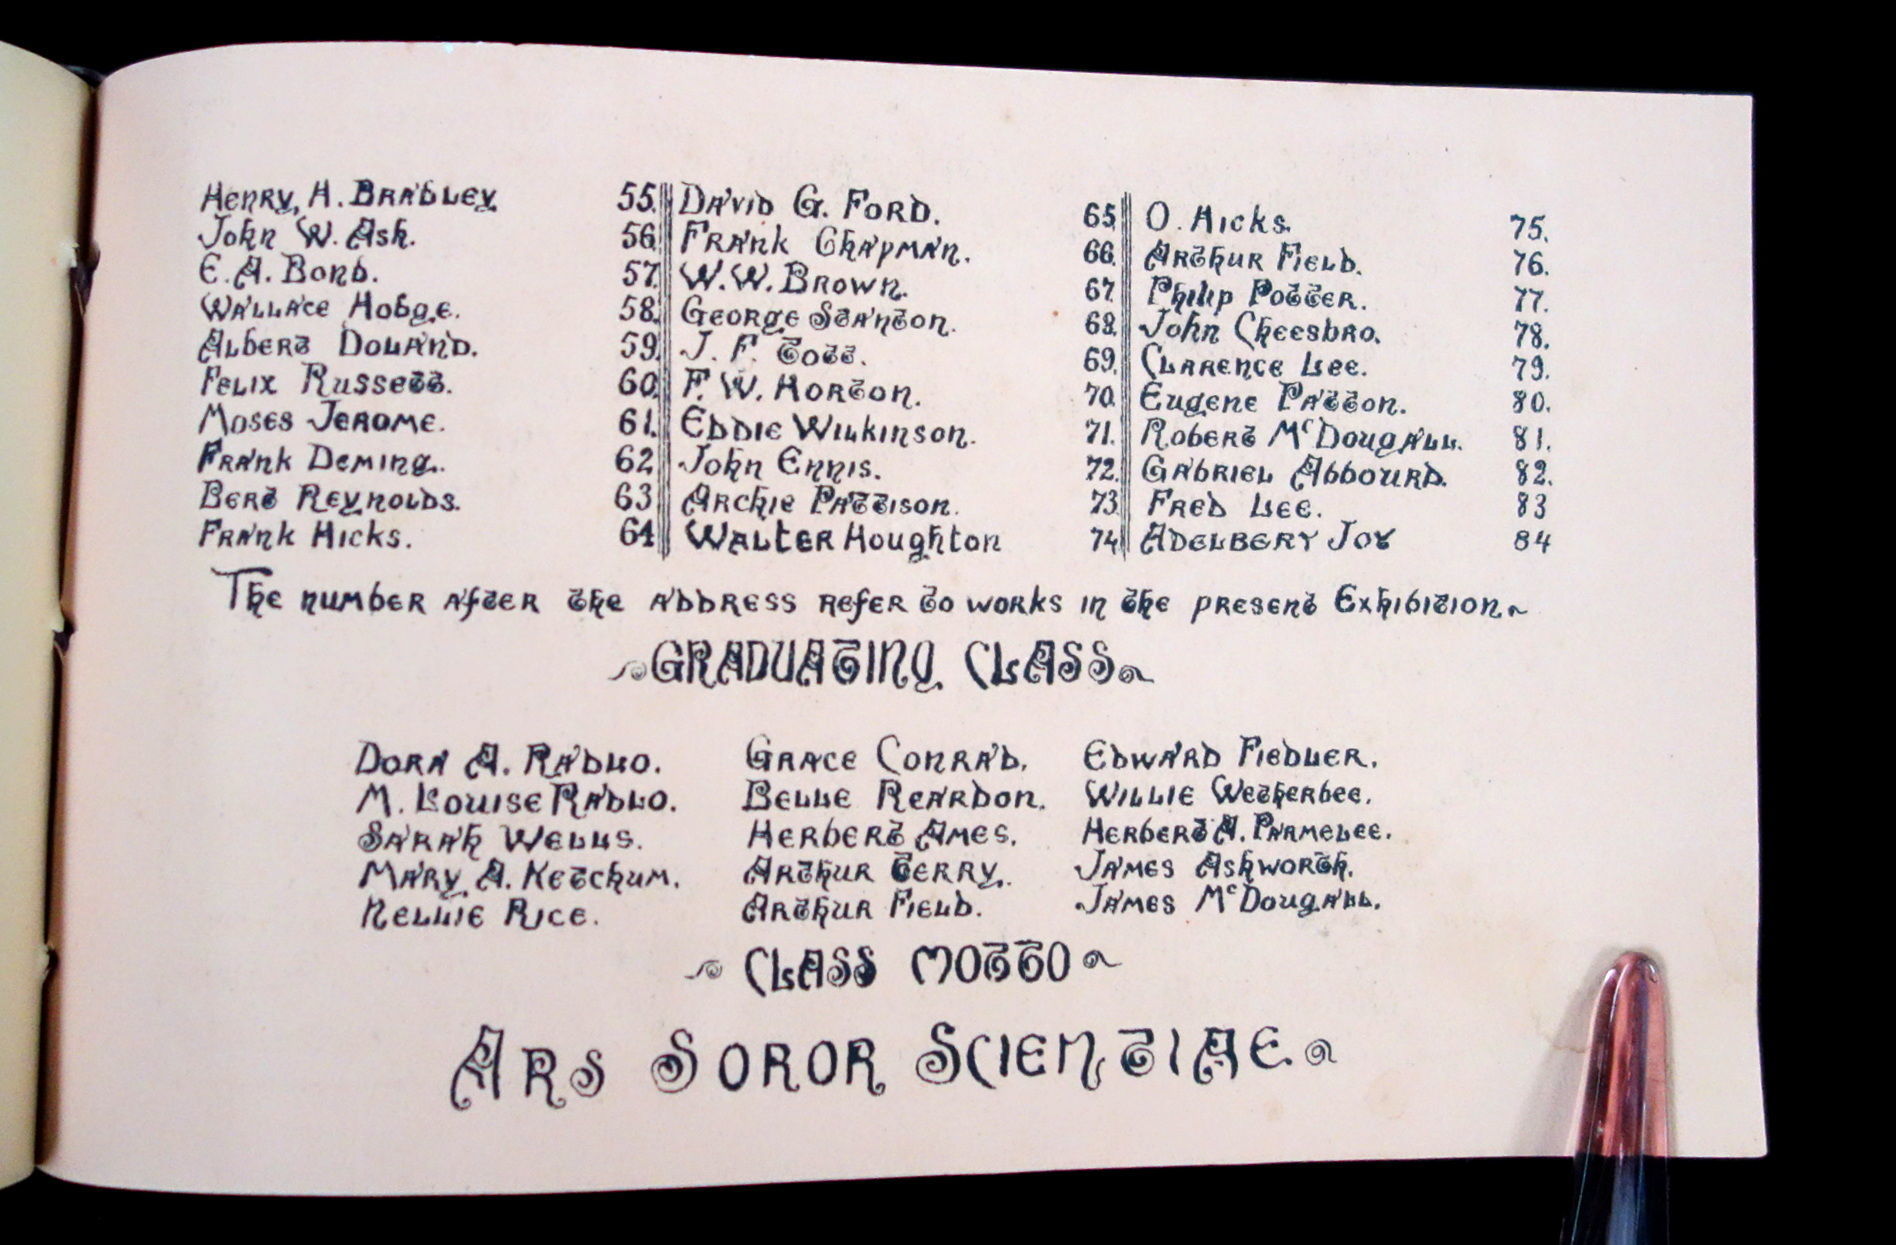 Henry H. Bradley 55.
John W. Ash. 56.
E. A. Bond. 57.
Wallace Hodge. 58.
Albert Doland. 59.
Felix Russett. 60.
Moses Jerome. 61.
Frank Deming. 62.
Bert Reynolds. 63
Frank Hicks. 64
David G. Ford. 65
Frank Chapman. 66.
W. W. Brown. 67.
George Stanton. 68.
J. F. Tott. 69.
F. W. Horton. 70.
Eddie Wilkinson. 71.
John Ennis. 72.
Archie Pattison. 73
Walter Houghton 74
O. Hicks. 75.
Arthur Field. 76.
Philip Potter. 77.
John Cheesbro. 78.
Clarence Lee. 79.
Eugene Patton. 80.
Robert McDougall. 81.
Gabriel Abbourd. 82.
Fred Lee. 83
Adelbery Joy 84
The number after the address refer to works in the present Exhibition
Graduating Class
Dora A. Radlo.
M. Louise Radlo.
Sarah Wells.
Mary A. Ketchum.
Nellie Rice.
Grace Conrad.
Belle Reardon.
Herbert Ames.
Arthur Terry.
Arthur Field.
Edward Fiedler.
Willie Wetherbee.
Herbert A. Parmelee.
James Ashworth.
James McDougall.
Class Motto
Ars Soror Scientiae